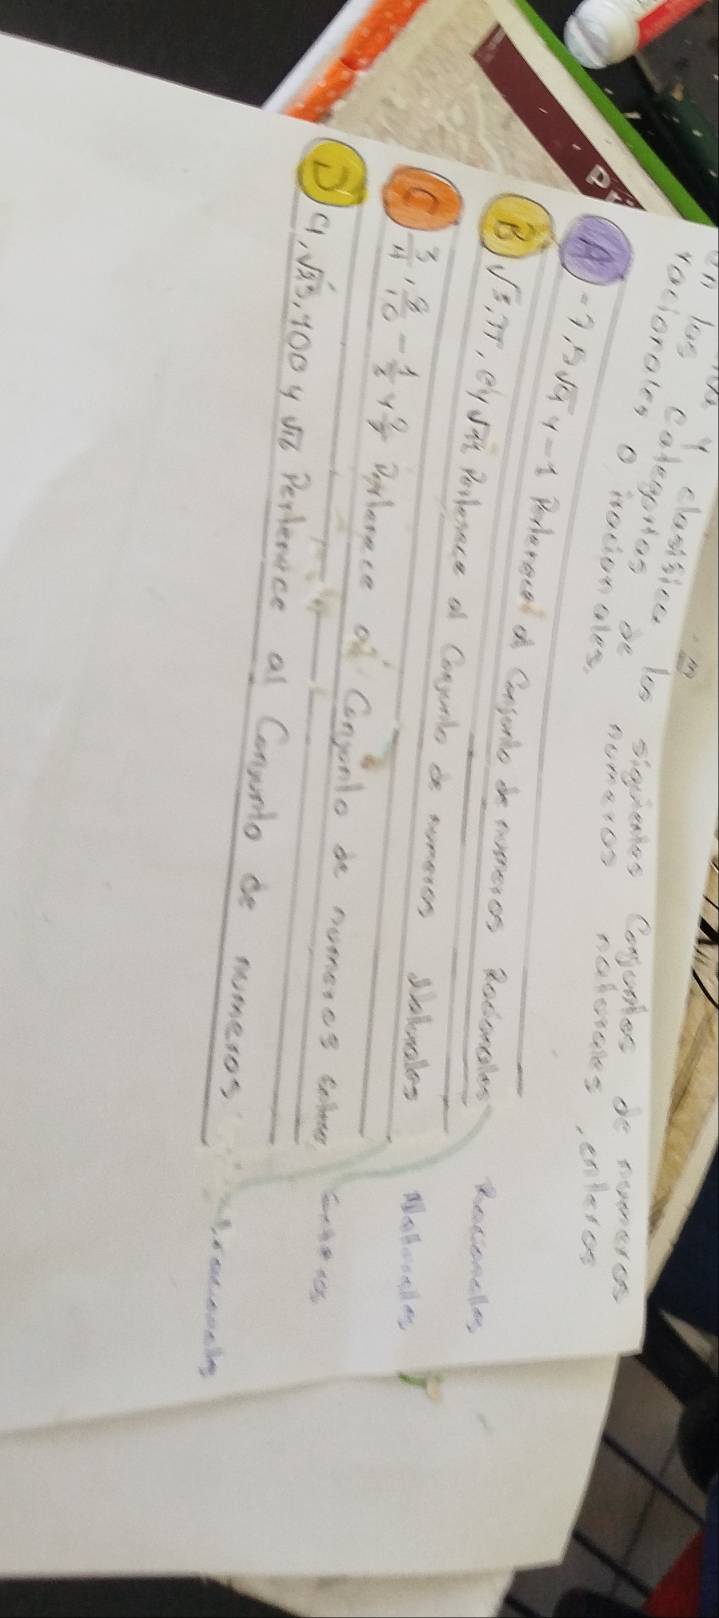 y clasifica los siguientes Conjuntos de numeros
en las categorias de numeros naturales, enteros
racionales o iracionales.
A -7, 5 √9 y -1 Pertenece al Conjunto de numeros Racionales
B √3, π, e y √ Pertenece al Conjunto de numeros Naturales
C 3/4, 8/10 - 1/2 y Pertenece al Conjunto de numeros enteros
D 4, √25, 100 y √16 Pertenece al Conjunto de numeros
Racionales
Naturales
Enteros
Irracionales